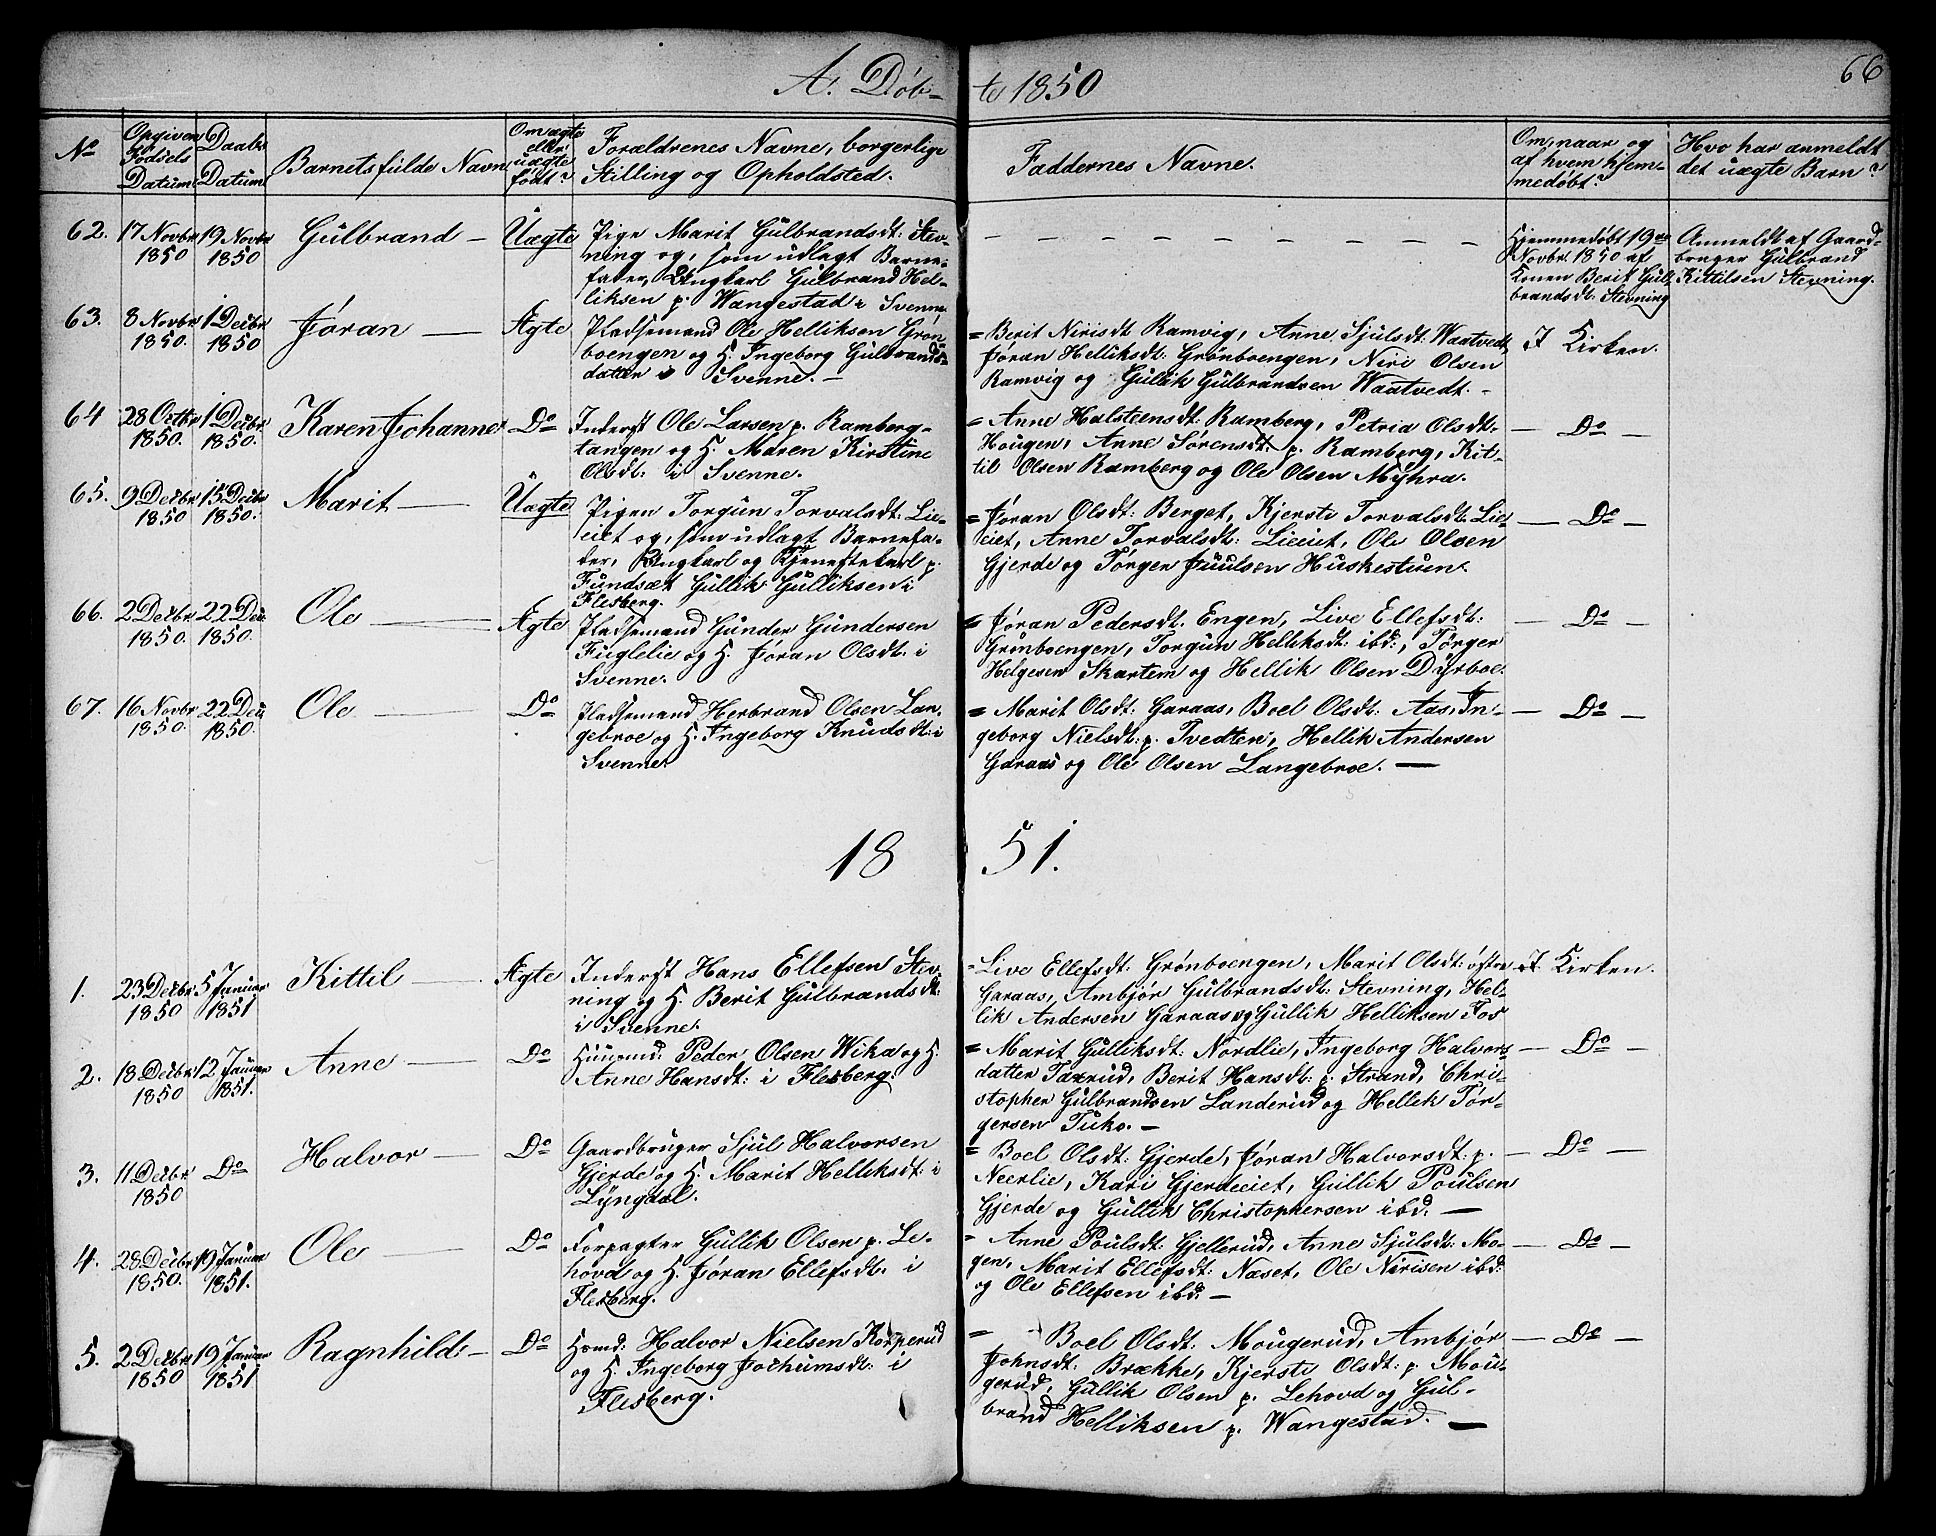 A. Døb- te 1850
66
No
Opgiven Fødsels Datum
Daabs Datum
Barnets fulde Navn
Om ægte eller uægte født?
Forældrenes Navne, borgerlige
Stilling og Opholdsted.
Faddernes Navne.
Om, naar og af hvem hjem-
medøbt?
Hvo har anmeldt
det uægte Barn?
62. 17 Novbr 1850 19 Novbr 1850 Gulbrand — Uægte
Pige Marit Gulbrandsdt: Stev-
ning og, som udlagt Barne-
fader, Ungkarl Gulbrand Hel-
liksen p. Wangestad i Svenne
Hjemmedøbt 19de
Novbr 1850 af
Konen Berit Gul-
brandsdt. Stevning
Anmeldt af Gaard-
bruger Gulbrand
Kittilsen Stevning.
63. 8 Novbr 1850. 1 Decbr 1850 Jøran — Ægte
Pladsemand Ole Helliksen Grøn-
boengen og H. Ingeborg Gulbrands-
datter i Svenne. —
= Berit Nirisdt Ramvig, Anne Sjulsdt: Waatvedt,
Jøran Helliksdt: Grønboengen, Niri Olsen
Ramvig og Gullik Gulbrandsen Waatvedt. -
I Kirken.
64 28 Octbr 1850. 1 Decbr 1850. Karen Johanne Do
Inderst Ole Larsen p. Ramberg-
tangen og H. Maren Kirstine
Olsdt: i Svenne.
= Anne Halsteensdt: Ramberg, Petria Olsdt:
Hougen, Anne Sørensdt: p. Ramberg, Kit-
til Olsen Ramberg og Ole Olsen Myhra.
— Do —
65. 9 Decbr 1850 15 Decbr 1850. Marit — Uægte
Pigen Torgun Torvalsdt: Lie-
eiet og, som udlagt Barnefa-
der, Ungkarl og Tjenestekarl p.
Fundsæt Gullik Gulliksen i
Flesberg.
= Jøran Olsdt: Berget, Kjersti Torvalsdt. Lie-
eiet, Anne Torvalsdt: Lieeiet, Ole Olsen
Gjerde og Tørgen Juulsen Huskestuen.
— Do —
66. 2 Decbr 1850. 22 Dec 1850. Ole — Ægte
Pladsemand Gunder Gundersen
Fuglelie og H. Jøran Olsdt: i
Svenne.
= Jøran Pedersdt. Engen, Live Ellefsdt:
Grønboengen, Torgun Helliksdt: ibd:, Tørger
Helgesen Skartem og Hellik Olsen Dyrboe.
— Do —
67. 16 Novbr 1850. 22 Dec 1850. Ole — Do
Pladsemand Herbrand Olsen Lan-
gebroe og H. Ingeborg Knudsdt: i
Svenne.
= Marit Olsdt: Garaas, Boel Olsdt: Aas, In-
geborg Nielsdt: p. Tvedten, Hellik Andersen
Garaas og Ole Olsen Langebroe. —
— Do —
18 51.
1. 23 Decbr 1850 5 Januar 1851 Kittil — Ægte
Inderst Hans Ellefsen Stev-
ning og H. Berit Gulbrandsdt:
i Svenne.
= Live Ellefsdt: Grønboengen, Marit Olsdt: østre
Garaas, Ambjør Gulbrandsdt: Stevning, Hel-
lik Andersen Garaas og Gullik Helliksen Fos
I Kirken.
2. 18 Decbr 1850 12 Januar 1851. Anne — Do
Huusmd: Peder Olsen Wika og H.
Anne Hansdt: i Flesberg.
= Marit Gulliksdt: Nordlie, Ingeborg Halvors-
datter Taxrud, Berit Hansdt: p. Strand, Chri-
stopher Gulbrandsen Landerud og Hellek Tør-
gersen Tuko. —
— Do —
3. 11 Decbr 1850 Do Halvor — Do
Gaardbruger Sjul Halvorsen
Gjerde og H. Marit Helliksdt: i
Lyngdal.
= Boel Olsdt: Gjerde, Jøran Halvorsdt: p.
Neerlie, Kari Gjerdeeiet, Gullik Poulsen
Gjerde og Gullik Christophersen ibd. —
— Do —
4. 28 Decbr 1850. 19 Januar 1851. Ole — Do
Forpagter Gullik Olsen p. Le-
hovd og H. Jøran Ellefsdt: i
Flesberg.
= Anne Poulsdt: Gjellerud, Anne Sjulsdt: Mo-
gen, Marit Ellefsdt: Næset, Ole Nirisen ibd:
og Ole Ellefsen ibd. —
— Do —
5. 2 Decbr 1850 19 Januar 1851 Ragnhild — Do
Hsmd: Halvor Nielsen Korperud
og H. Ingeborg Jochumsdt: i
Flesberg.
= Boel Olsdt: Mougerud, Ambjør
Johnsdt: Brække, Kjersti Olsdt: p. Mou-
gerud, Gullik Olsen p. Lehovd og Gul-
brand Helliksen p. Wangestad. —
— Do —